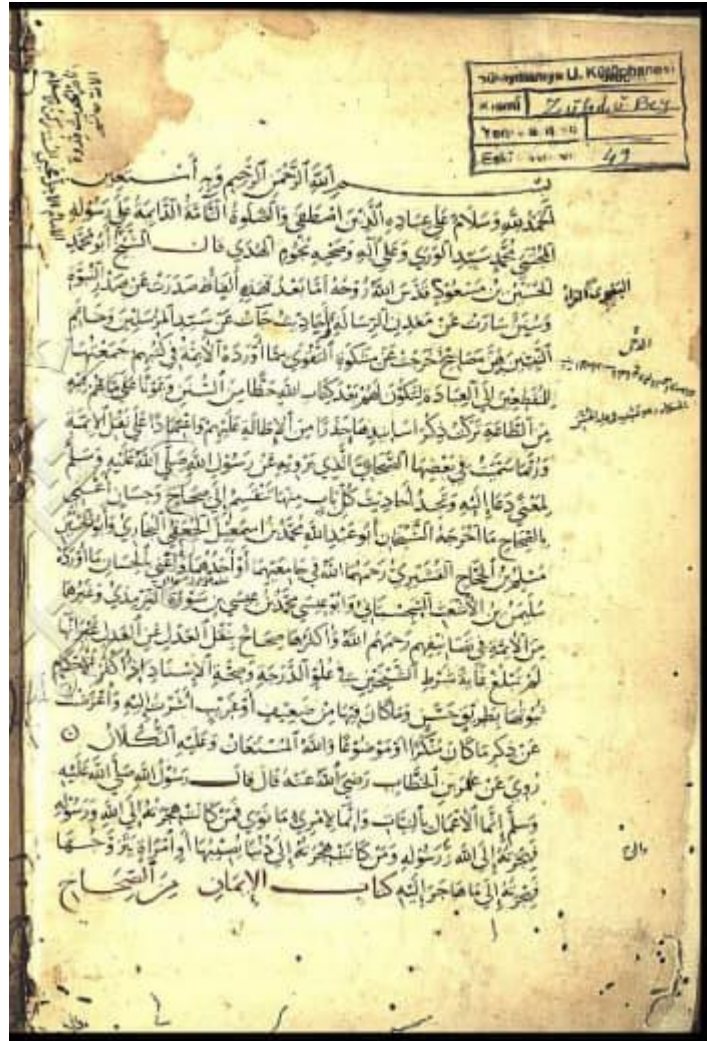 Süleymaniye U. Kütüphanesi
Kısmı Zühdü Bey
Eski 49
بسم الله الرحمن الرحيم وبه أستعين
الحمد لله وسلام على عباده الذين اصطفى والصلوة التامة الدائمة على رسوله
المجتبى محمد سيد الورى وعلى آله وصحبه نجوم الهدى قال الشيخ أبو محمد
الحسين بن مسعود قدس الله روحه أما بعد فهذه ألفاظ صدرت عن صدر النبوة
وسنن سارت عن معدن الرسالة وأحاديث جاءت عن سيد المرسلين وخاتم
النبيين هن مصابيح خرجت عن مشكوة التقوى مما أورده الأئمة في كتبهم جمعتها
للمنقطعين إلى العبادة لتكون لهم بعد كتاب الله حظا من السنن وعونا على ما هم فيه
من الطاعة تركت ذكر اسانيدها حذرا من الإطالة عليهم واعتمادا على نقل الأئمة
وربما سميت في بعضها الصحابي الذي يرويه عن رسول الله صلى الله عليه وسلم
لمعنى دعا إليه وتجد أحاديث كل باب منها تنقسم إلى صحاح وحسان أعني
بالصحاح ما أخرجه الشيخان أبو عبد الله محمد بن اسمعيل الجعفي البخاري وأبو الحسين
مسلم بن الحجاج القشيري رحمهما الله في جامعيهما أو أحدهما وأعني بالحسان ما أورده
سليمن بن الأشعث السجستاني وأبو عيسى محمد بن عيسى بن سورة الترمذي وغيرهما
من الأئمة في تصانيفهم رحمهم الله وأكثرها صحاح بنقل العدل عن العدل غير أنها
لم تبلغ غاية شرط الشيخين في علو الدرجة وصحة الإسناد إذ أكثر الأحكام
ثبوتها بطريق حسن وما كان فيها من ضعيف أو غريب أشرت إليه وأعرضت
عن ذكر ما كان منكرا أو موضوعا والله المستعان وعليه التكلان
روي عن عمر بن الخطاب رضي الله عنه قال قال رسول الله صلى الله عليه
وسلم إنما الأعمال بالنيات وإنما لامرئ ما نوى فمن كانت هجرته إلى الله ورسوله
فهجرته إلى الله ورسوله ومن كانت هجرته إلى دنيا يصيبها أو امرأة يتزوجها
فهجرته إلى ما هاجر إليه كتاب الإيمان من الصحاح